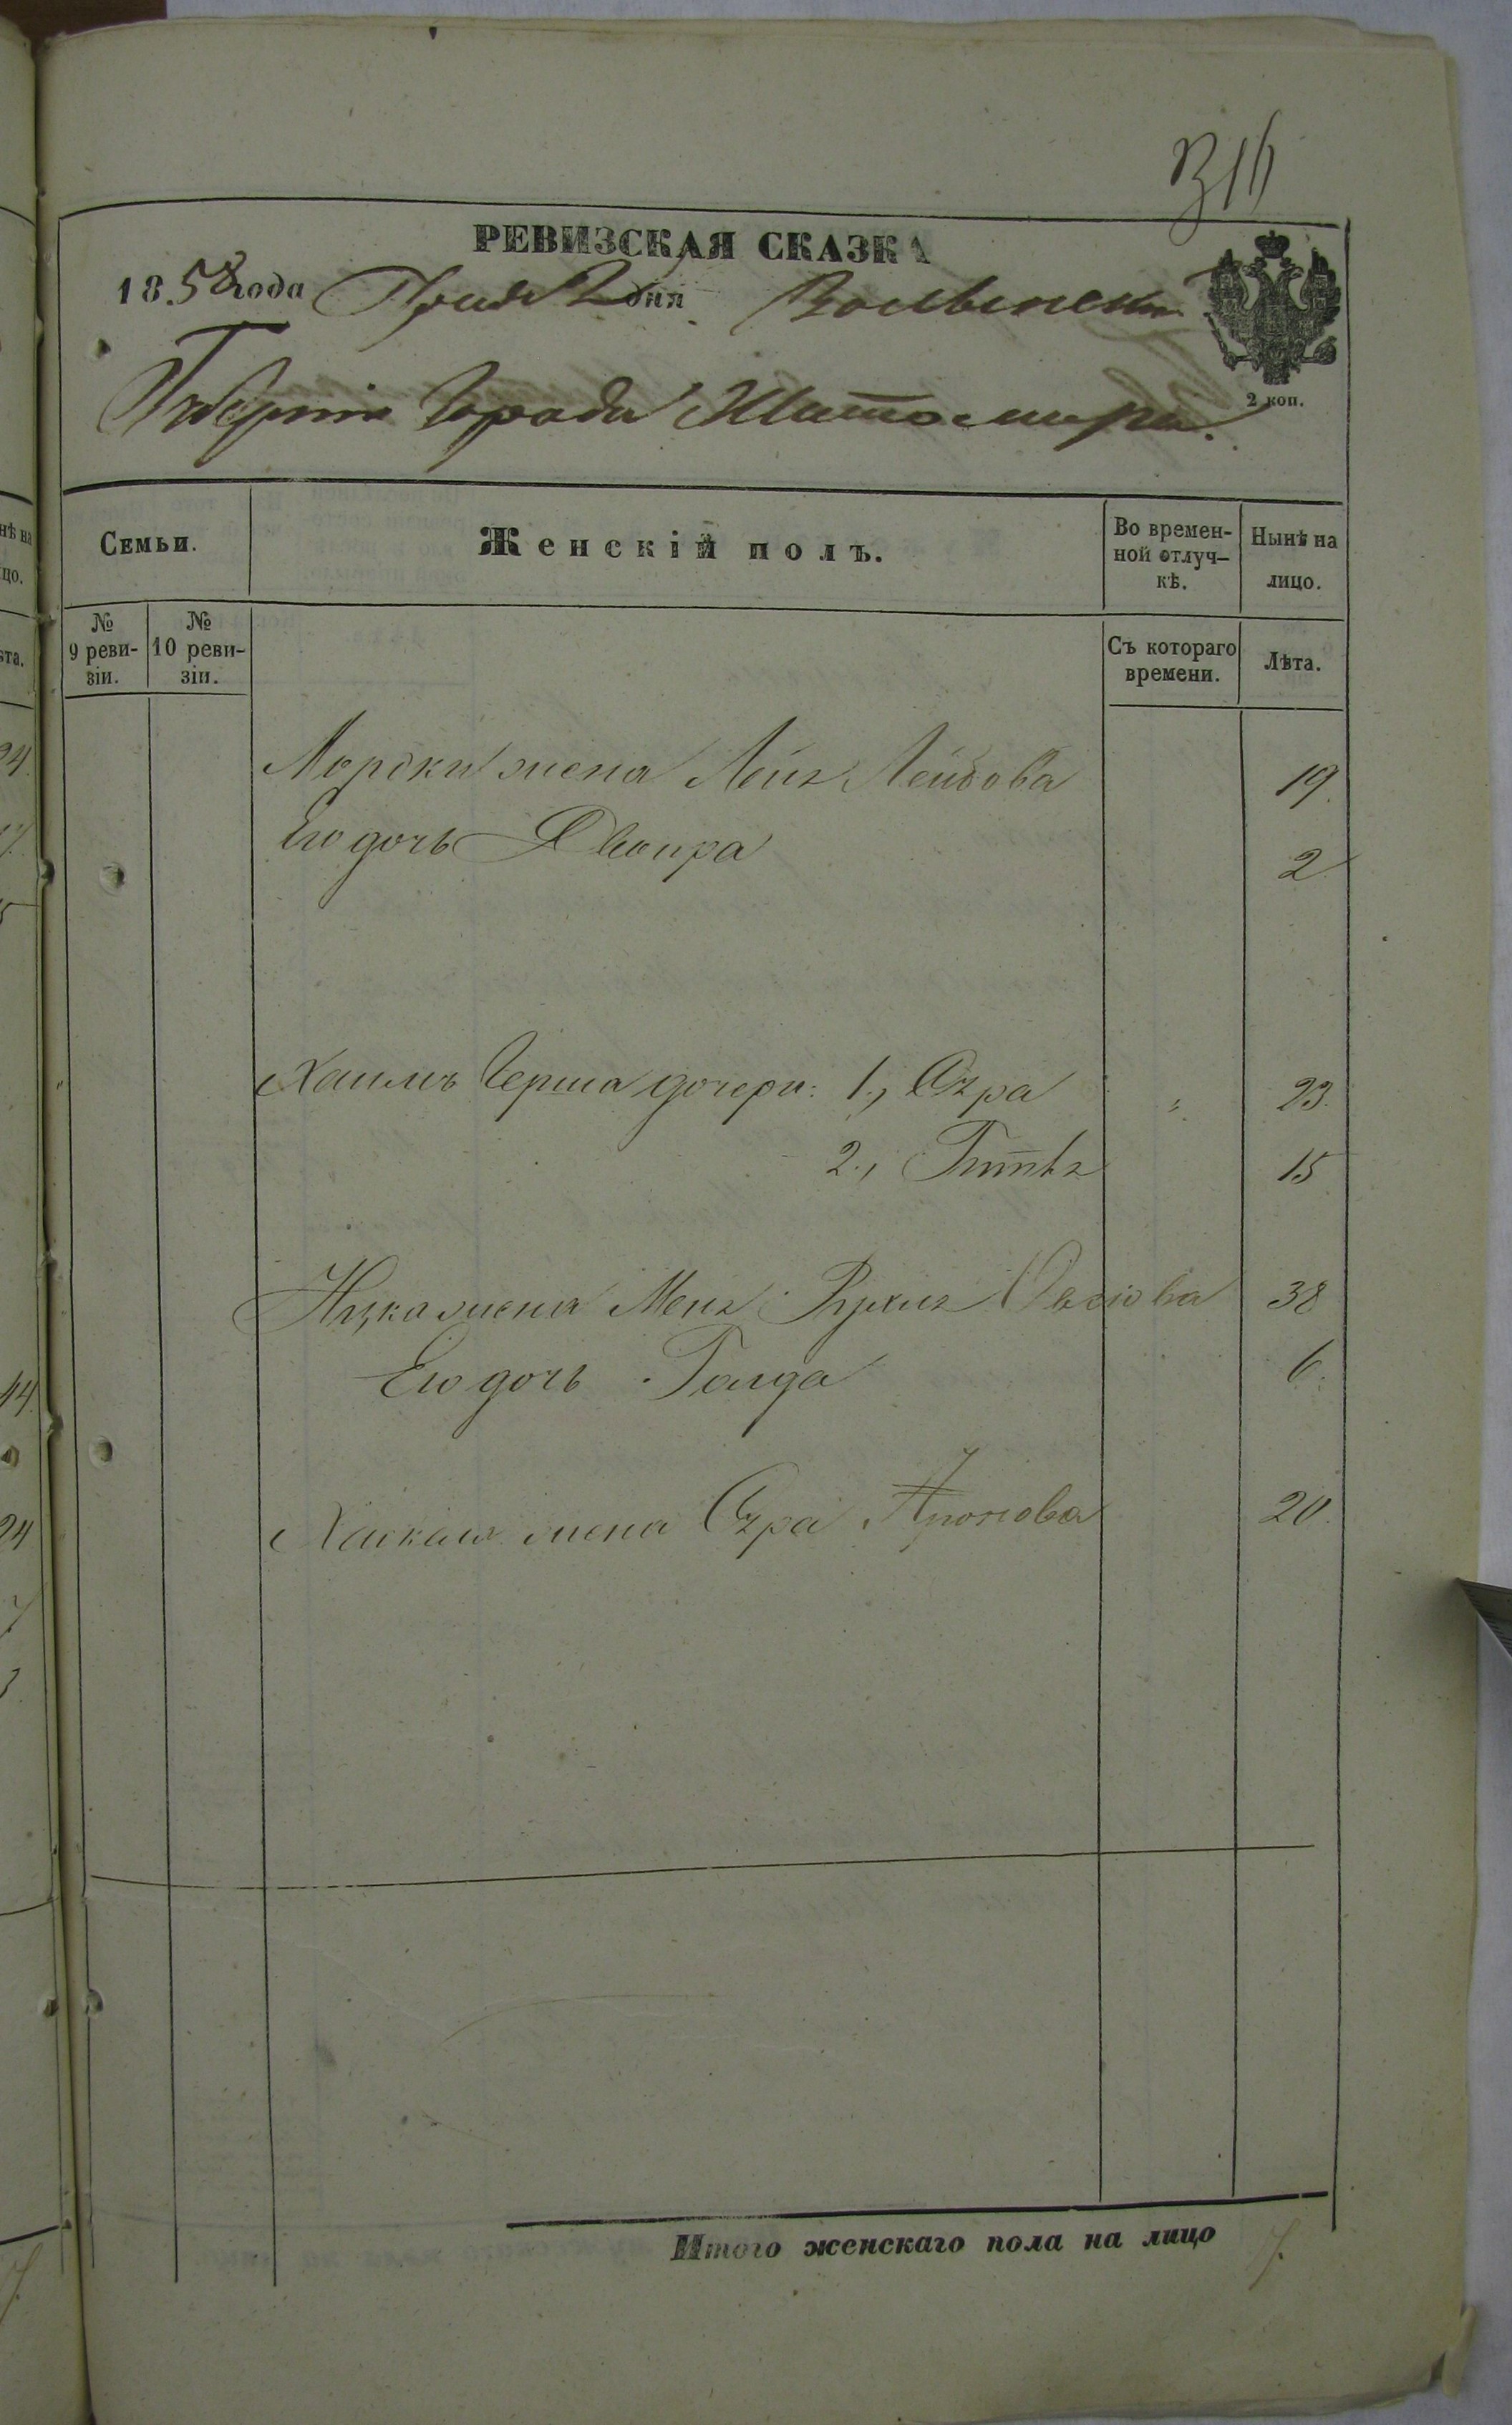 316
РЕВИЗСКАЯ СКАЗКА
1858 года Іюня 2 дня Волынской
Губерніи Города Житомира.
2 коп.
Семьи.
Женскій полъ.
Во времен-
ной отлуч-
кѣ.
Нынѣ на
лицо.
№
9 реви-
зіи.
№
10 реви-
зіи.
Съ котораго
времени.
Лѣта.
жена Лея Лейбова 19.
Его дочь Двойра 2
Хаимъ Герша дочери: 1., Сура " 23.
2., 15
жена Рухля 38
Его дочь Голда 6.
Хаикеля жена Сура 20.
Итого женскаго пола на лицо 7.